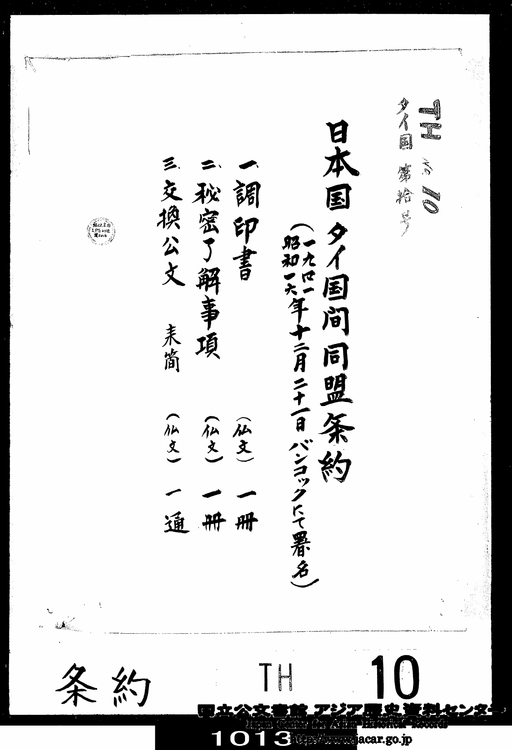 TH No 10
タイ国 第拾号
日本国タイ国間同盟条約
(一九四一 昭和一六年十二月二十一日 バンコックにて署名)
一、調印書 (仏文) 一冊
二、秘密了解事項 (仏文) 一冊
三、交換公文 来簡 (仏文) 一通
条約 TH 10
国立公文書館 アジア歴史資料センター
Japan Center for Asian Historical Records
http://www.jacar.go.jp
1013